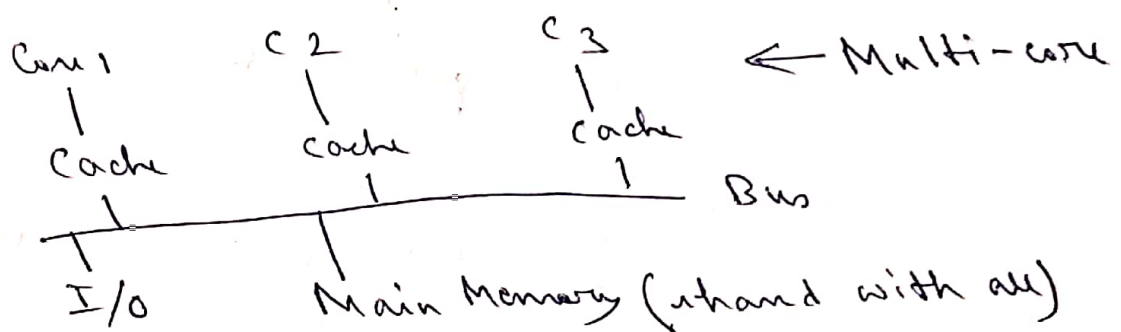 Core 1 C 2 C 3 ← Multi-core
Cache Cache Cache
Bus
I/O Main Memory (shared with all)